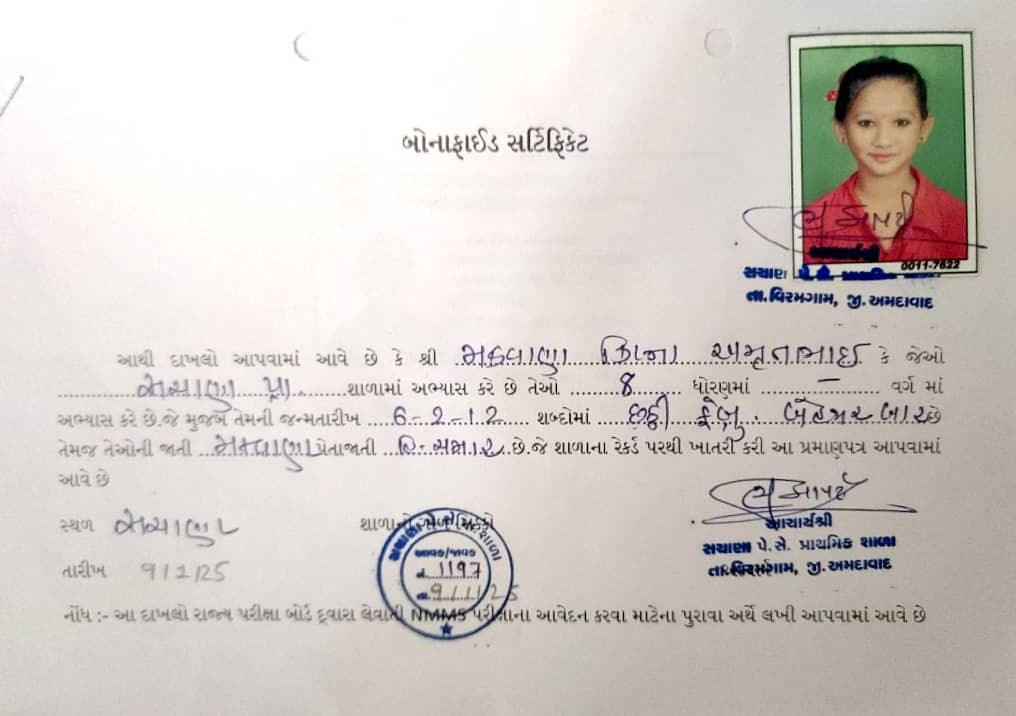 બોનાફાઈડ સર્ટિફિકેટ
0011-7622
સચાણા પે. સે. પ્રાથમિક
તા.વિરમગામ, જી.અમદાવાદ
આથી દાખલો આપવામાં આવે છે કે શ્રી મકવાણા અમૃતભાઈ કે જેઓ
સચાણા પ્રા. શાળામાં અભ્યાસ કરે છે તેઓ 8 ધોરણમાં - વર્ગ માં
અભ્યાસ કરે છે.જે મુજબ તેમની જન્મતારીખ 6-2-12 શબ્દોમાં છઠ્ઠી ફેબ્રુ. બેહજાર બાર છે
તેમજ તેઓની જાતી પેતાજાતી .છે.જે શાળાના રેકર્ડ પરથી ખાતરી કરી આ પ્રમાણપત્ર આપવામાં
આવે છે
સ્થળ સચાણા
શાળાનો ગોળ સિક્કો
આચાર્યશ્રી
સચાણા પે. સે. પ્રાથમિક શાળા
તા.વિરમગામ, જી.અમદાવાદ
આવક/જાવક
નં. 1197
તા. 9/1/25
તારીખ 9/2/25
નોંધ :- આ દાખલો રાજ્ય પરીક્ષા બોર્ડ દ્વારા લેવાતી NMMS પરીક્ષાના આવેદન કરવા માટેના પુરાવા અર્થે લખી આપવામાં આવે છે